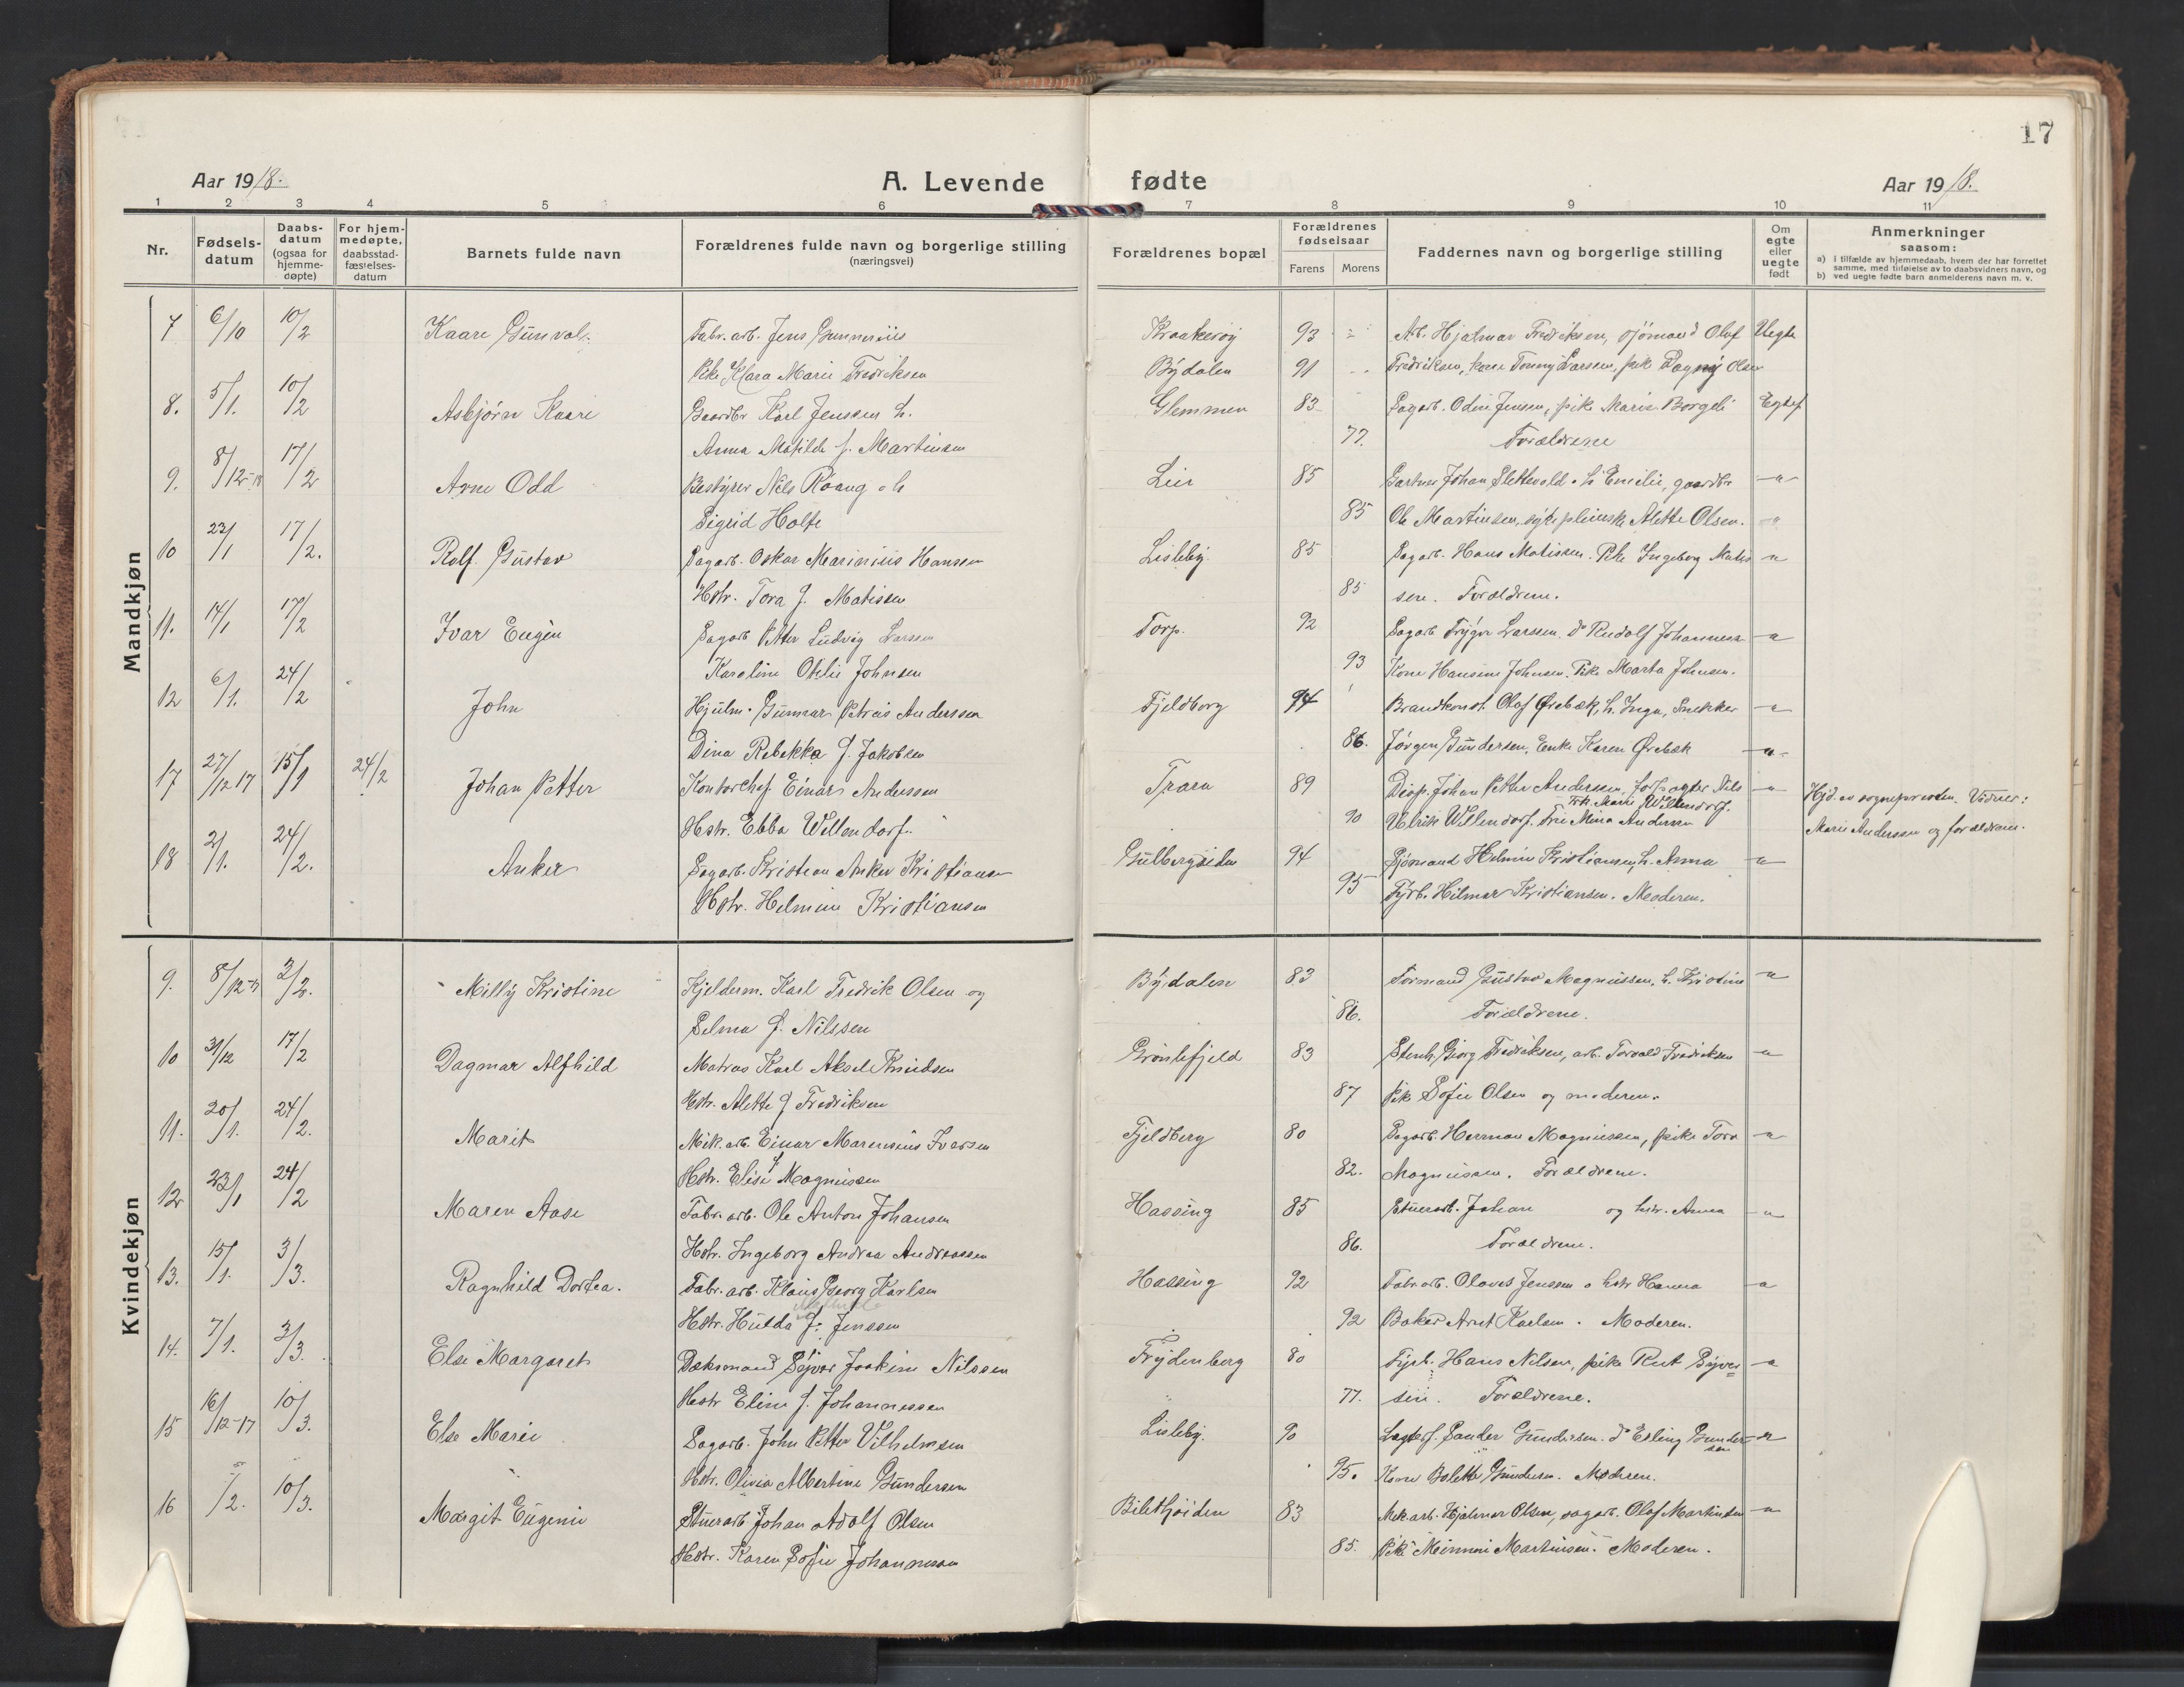 17
Aar 1918.
A. Levende fødte
Aar 1918.
1 2 3 4 5 6 7 8 9 10 11
Nr.
Fødselsdatum
Daabsdatum (ogsaa for hjemmedøpte)
For hjemmedøpte, daabsstadfæstelsesdatum
Barnets fulde navn
Forældrenes fulde navn og borgerlige stilling (næringsvei)
Forældrenes bopæl
Forældrenes fødselsaar
Farens Morens
Faddernes navn og borgerlige stilling
Om egte eller uegte født
Anmerkninger saasom:
a) i tilfælde av hjemmedaab, hvem der har forrettet samme, med tilføielse av to daabsvidners navn, og
b) ved uegte fødte barn anmelderens navn m. v.
Mandkjøn
7 6/10 10/2 Kaare Gunval. Fabr. arb. Jens Gunnerius Kraakerøy 93 Arb. Hjalmar Fredriksen, sjømand Olaf Uegte
Pike Klara Marie Fredriksen Bydalen 91 Fredriksen, kone Tonny Larsen, pike Dagny Olsen
8. 5/1. 10/2 Asbjørn Kaare Gaardbr Karl Jensen h. Glemmen 83 Sagarb. Odin Jensen, pike Marie Borgeli Egtef
Anna Matilde f. Martinsen 77. Forældrene
9. 8/12-18 17/2 Arne Odd Bestyrer Nils Roang o h Leir 85 Gartner Johan Slettevold o h Emilie, gaardbr -"-
Sigrid Holte 85 Ole Martinsen, sykepleierske Alette Olsen.
10 23/1 17/2. Rolf Gustav Sagarb. Oskar Marinius Hansen Lisleby. 85 Sagarb. Hans Matissen. Pike Ingeborg Matis "
Hstr. Tora f. Matissen 85 sen. Forældrene.
11. 14/1 17/2 Ivar Eugen Sagarb Petter Ludvig Larsen Torp. 92 Sagarb Trygve Larsen. do Rudolf Johannesen -"
Karoline Otelie Johnsen 93 Kone Hansine Johnsen. Pike Marta Johnsen.
12 6/1. 24/2 John Hjulm. Gunnar Petreus Anderssen Fjeldberg 94 Brandkonst. Olaf Ørebæk, h. Inga, Snekker -"
Dina Rebekka f. Jakobsen 86. Jørgen Gundersen, Enke Karen Ørebæk -"-
17 27/12 17 15/1 24/2 Johan Petter Kontorchef Einar Anderssen Trara 89 Disp. Johan Petter Anderssen, forpagter Nils -" Hjd. av sognepresten. Vidner:
Frk. Marie Willendorf.
Hstr. Ebba Willendorf. 90 Ulrik Willendorf. Frue Mina Andersen Marie Anderssen og forældrene.
18 2/1. 24/2. Anker Sagarb. Kristian Anker Kristiansen Gulbergsiden 94 Sjømand Helmin Kristiansen, h. Anna -"
Hstr. Helmine Kristiansen 95 Fyrb. Hilmar Kristiansen. Moderen.
Kvindekjøn
9. 8/12-17 3/2. Milly Kristine Kjelderm. Karl Fredrik Olsen og Bydalen 83 Formand Gustav Magnussen, h. Kristine -"
Selma f. Nilssen 86. Forældrene.
10 31/12 17/2 Dagmar Alfhild Matros Karl Aksel Knudsen Grønlifjeld 83 Stenh. Georg Fredriksen, arb. Torvald Fredriksen -"
Hstr. Alette f Fredriksen 87 pike Sofie Olsen og moderen.
11. 20/1. 24/2. Marit Mek. arb. Einar Marensius Iversen Fjeldberg 80 Sagarb. Herman Magnussen, pike Tora -"
Hstr. Elise f Magnussen 82. Magnussen. Forældrene.
12 23/1 24/2 Maren Aase Fabr. arb. Ole Anton Johansen Hassing 85 Stuerarb. Johan og hstr. Anna -"
Hstr. Ingeborg Andrea Andreassen 86. Forældrene.
13. 15/1. 3/3. Ragnhild Dortea. Fabr. arb. Klaus Georg Karlsen Hassing 92 Fabr arb. Olaves Jenssen o hstr Hanna -"
Hstr. Hulda f. Jenssen 92 Baker Arnt Karlsen. Moderen.
14. 7/1. 3/3. Else Margaret Dæksmand Syver Joakim Nilssen Frydenberg 80 Fyrb. Hans Nilsen, pike Rut Syver= -"
Hstr Eline f. Johannessen 77. sen. Forældrene.
15 16/12-17 10/3. Else Marie Sagarb. John Petter Vilhelmsen Lisleby. 90 Lagterf. Sander Gundersen. do Erling Gundersen -"
Hstr. Olivia Albertine Gundersen 95. Kone Bolette Gundersen. Moderen.
16 /2. 10/3. Margit Eugenie Stuerarb Johan Adolf Olsen Bilethøiden 83 Mek arb. Hjalmar Olsen, sagarb. Olaf Martinsen -"
Hstr. Karen Sofie Johannesen 85. Pike Minnni Martinsen. Moderen.